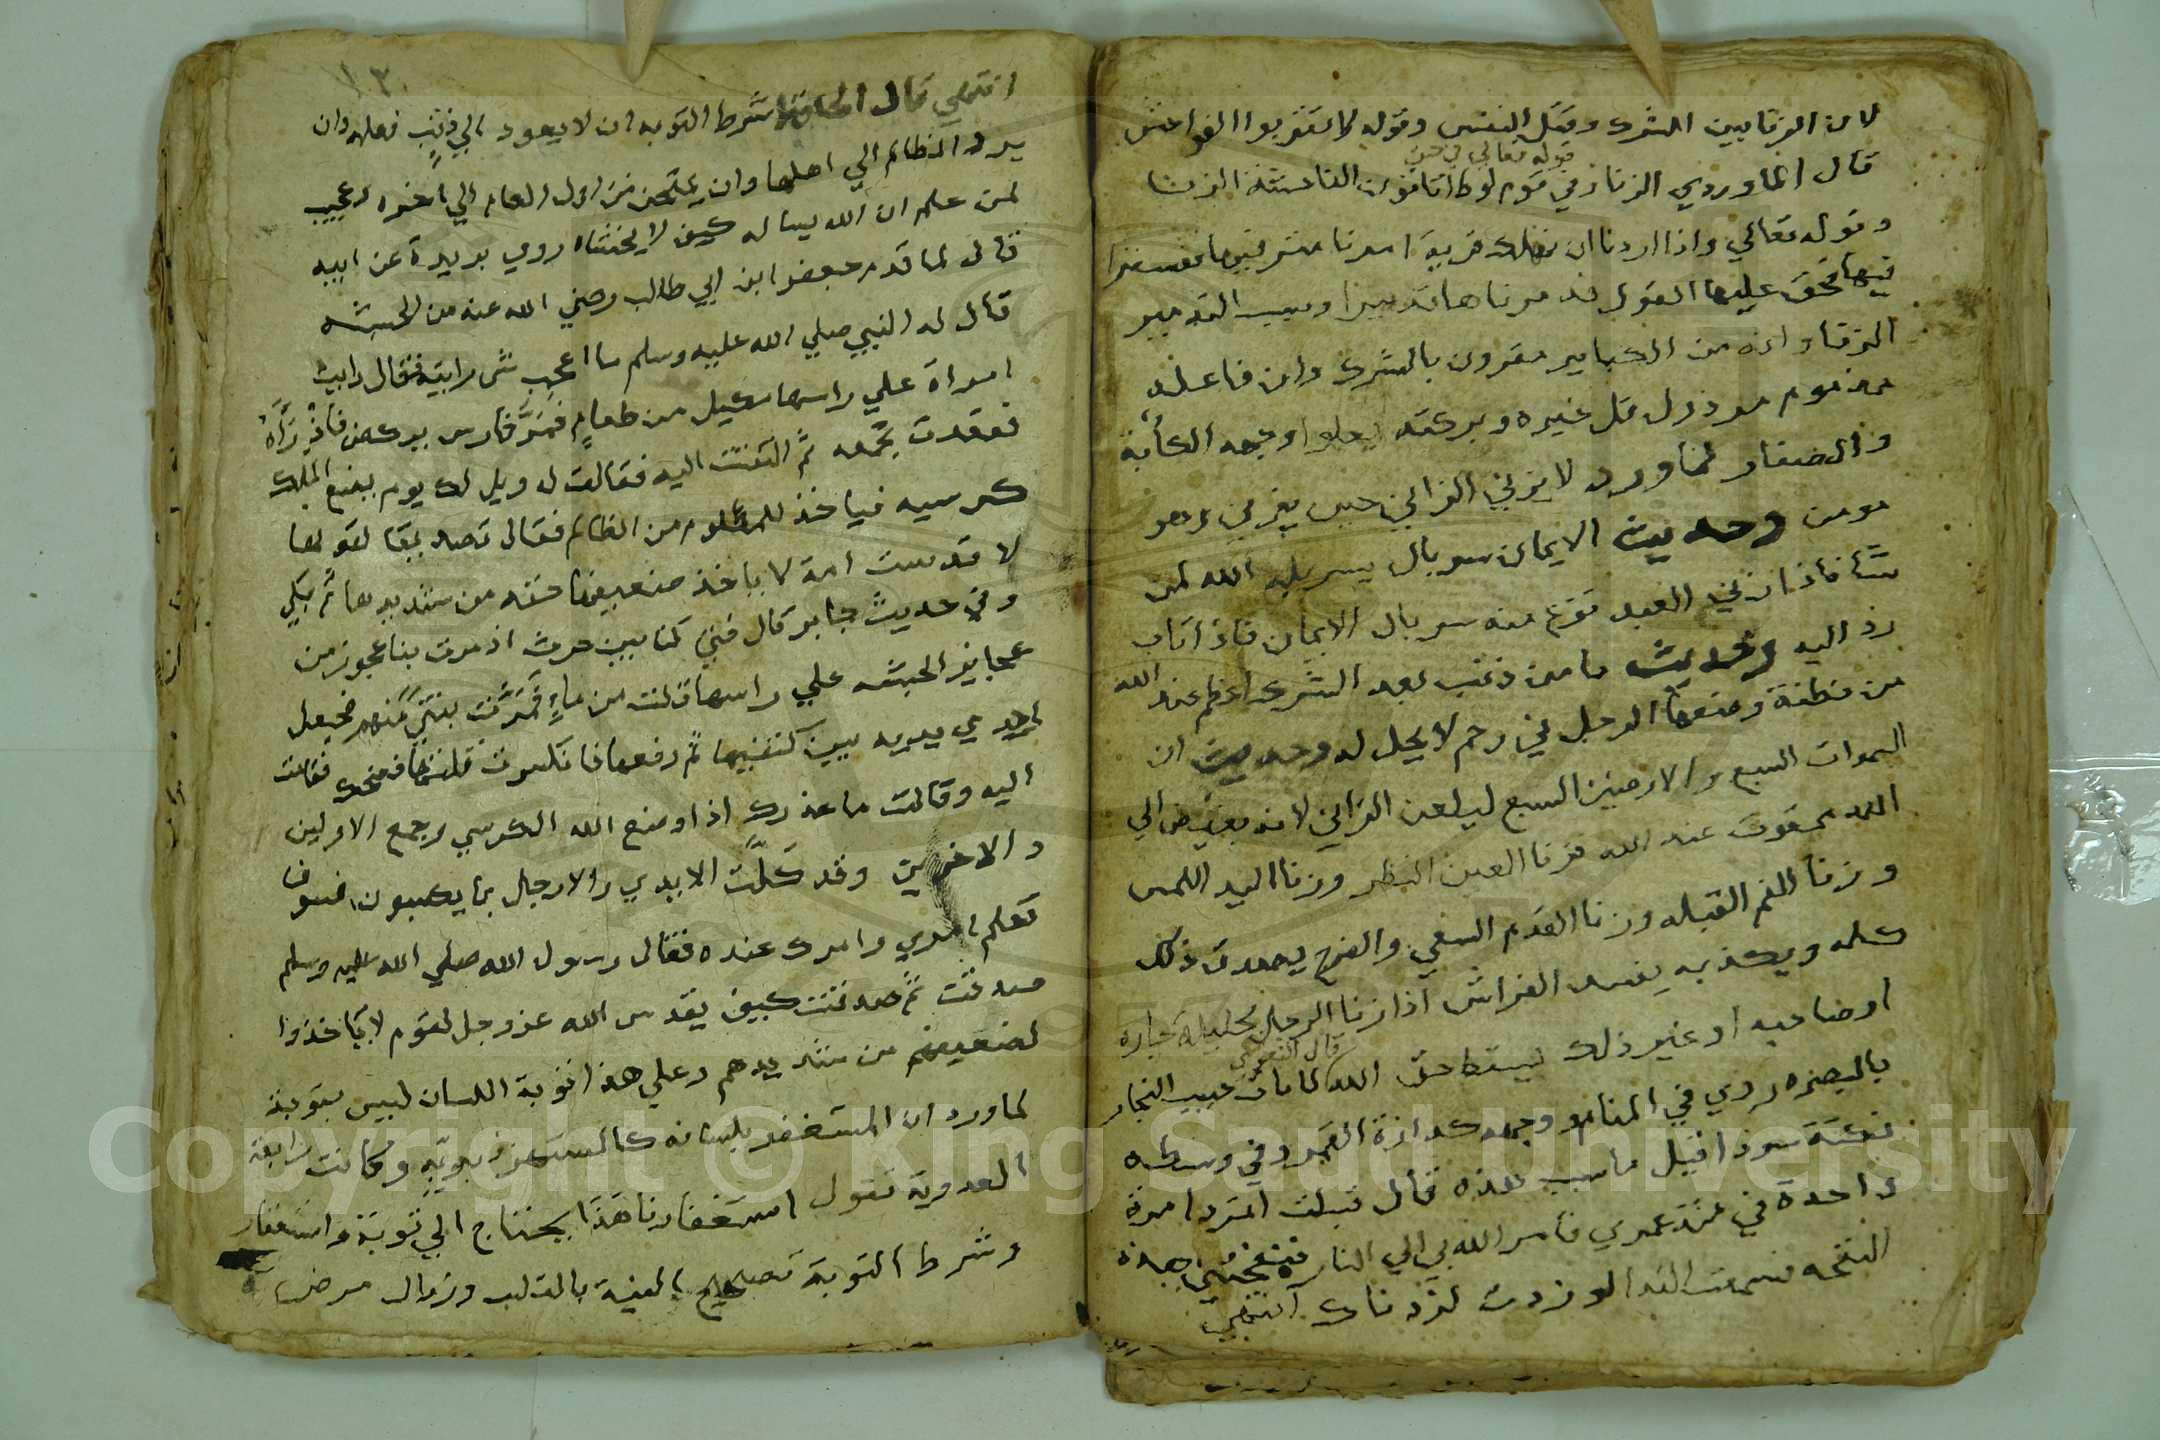 لان الزنا بين الشرك وقتل النفس وقوله لا تقربوا الفواحش
قوله تعالي في حق
قال الماوردي الزنا وفي قوم لوط اتاتون الفاحشة الزنا
وقوله تعالي واذا اردنا ان نهلك قرية امرنا مترفيها ففسقوا
فيها فحق عليها القول فدمرناها تدميرا وسبب التدمير
الزنا وانه من الكباير مقرون بالشرك وان فاعله
مذموم مرذول مثل غيره وبركته يعلوا وجهه الكأبة
والصغار لما ورد لا يزني الزاني حين يزني وهو
مومن وحديث الايمان سربال يسربله الله لمن
يشا فاذا زني العبد نزع منه سربال الايمان فاذا تاب
رد اليه وحديث ما من ذنب بعد الشرك اعظم عند الله
من نطفة وضعها الرجل في رحم لا يحل له وحديث ان
السموات السبع والارضين السبع ليلعن الزاني لانه
الله ممقوت عند الله فزنا العين النظر وزنا اليد اللمس
وزنا الفم القبله وزنا القدم السعي والفرج يصدق ذلك
كله ويكذبه يفسد الفراش اذا زنا الرجل بحليلة جاره
او صاحبه او غير ذلك ليسقط حق الله لما مات حبيب النجار
بالبصره روي في المنام ووجهه كدارة القمر وفي وسطه
نكتة سودا فقيل ما سبب هذه قال قبلت امرد امرة
واحدة في عمري فامر الله بي الي النار فنفختني
النفخه فسمعت الندا لو زدت لزدناك انتهي
١٣
انتهي قال الحافظ شرط التوبه ان لا يعود الي ذنب فعله وان
يرد المظالم الي اهلها وان يمتحن من اول العام الي اخره وعجيب
لمن علم ان الله يساله كيف لا يخشاه روي بريدة عن ابيه
قال لما قدم جعفر ابن ابي طالب رضي الله عنه من الحبشه
قال له النبي صلي الله عليه وسلم ما اعجب شي رايته فقال رايت
امراة علي راسها مكيل من طعام فمر فارس يركض فاذراه
فقعدت تجمعه ثم التفتت اليه فقالت له ويل لك يوم يضع الملك
كرسيه فياخذ للمظلوم من الظالم فقال تصديقا لقولها
لا قدست امة لا ياخذ ضعيفها حقه من شديدها ثم بكي
وفي حديث جابر قال فتي كنا بين حرث اذ مرت بنا عجوز من
عجايز الحبشه علي راسها قلت من ماء فمرت بفتي منهم فجعل
احدي يديه بين كتفيها ثم دفعها فانكسرت قلتها فضحك فقامت
اليه وقالت ما عذرك اذا وضع الله الكرسي وجمع الاولين
والاخرين وقد كلمت الايدي والارجل بما يكسبون فسوف
تعلم امري وامرك عنده فقال رسول الله صلي الله عليه وسلم
صدقت ثم صدقت كيف يقدس الله عز وجل لقوم لا ياخذوا
لضعيفهم من شديدهم وعلي هذا توبة اللسان ليس بتوبة
لما ورد ان المستغفر بلسانه كالمستهزء بربه وكانت رابعة
العدوية تقول استغفارنا هذا يحتاج الي توبة واستغفار
وشرط التوبة تصحيح النية بالقلب وزوال مرض